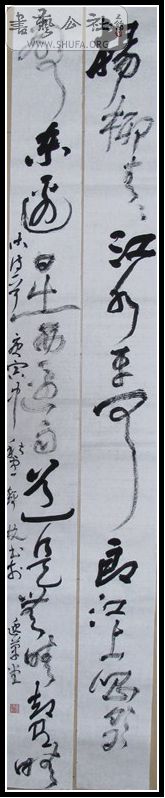 書藝公社
WWW.SHUFA.ORG
楊柳青青江水平聞郎江上唱歌
聲東邊日出西邊雨道是無晴卻有晴
庚寅年
書於
草堂